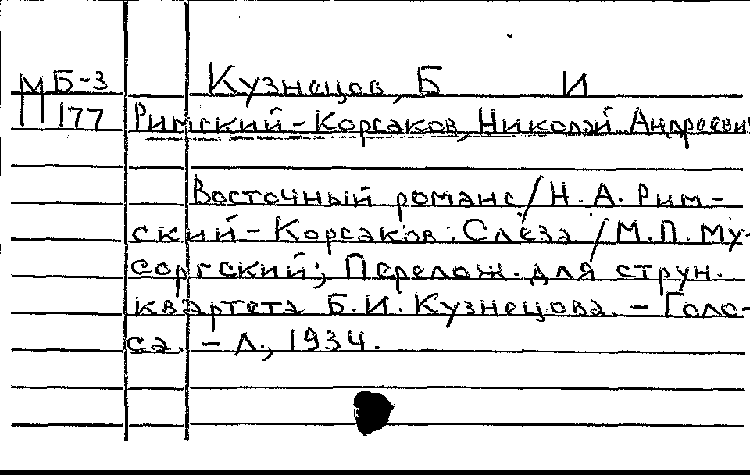 М Б-3 Кузнецов, Б И
П 177 Римский-Корсаков, Николай Андреевич
Восточный романс/Н.А. Рим-
ский-Корсаков. Слеза /М.П. Му-
соргский; Перелож. для струн.
квартета Б.И. Кузнецова. - Голо-
са. - Л., 1934.